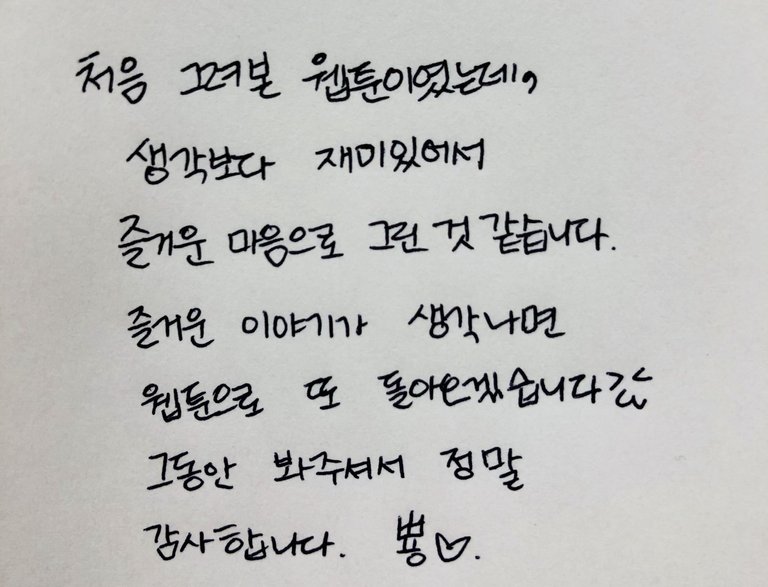 처음 그려본 웹툰이였는데,
생각보다 재미있어서
즐거운 마음으로 그린 것 같습니다.
즐거운 이야기가 생각나면
웹툰으로 또 돌아오겠습니다
그동안 봐주셔서 정말
감사합니다. 뿅♡.